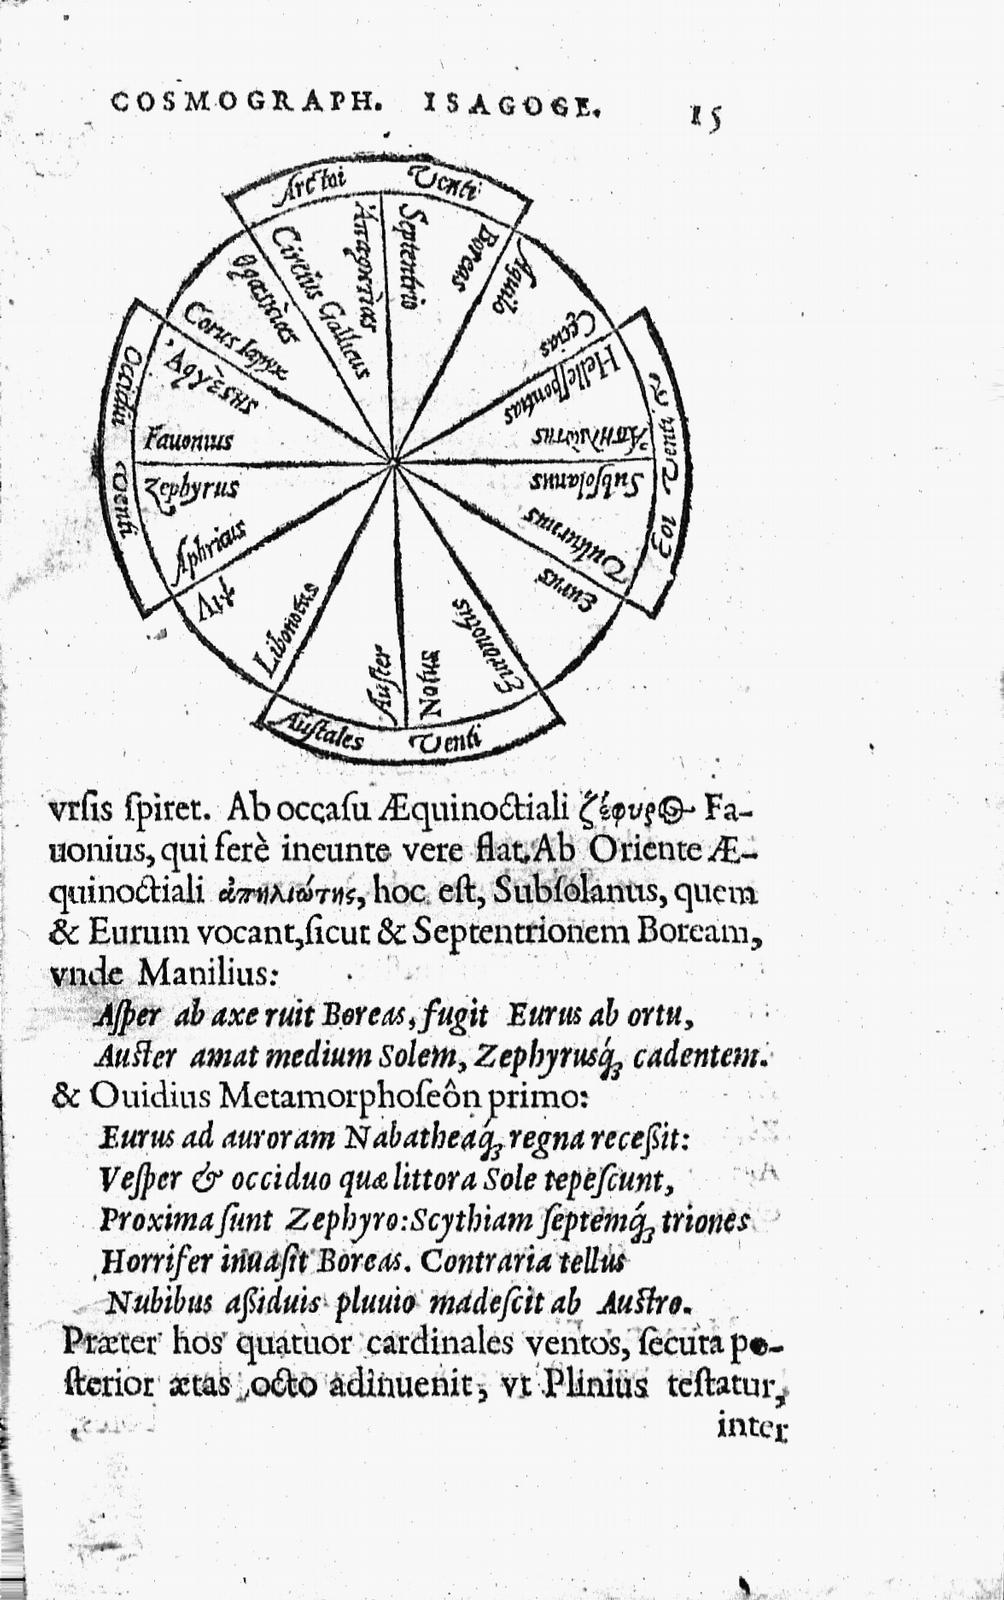 COSMOGRAPH. ISAGOGE. 15
Arctoi Venti
Ἀπαρκτίας
Septentrio
Boreas
Aquilo
Cecias
Helleſpontias
Ἀπηλιώτης
Subſolanus
Vulturnus
Eurus
Venti
Euronotus
Notus
Auſter
Auſtales Venti
Libonotus
Λιψ
Aphricus
Zephyrus
Fauonius
Occidui Venti
Ἀργέϛης
Corus Iapyx
Θρασκίας
Circius Gallicus
vrſis ſpiret. Ab occaſu Æquinoctiali ζέφυρος Fa-
uonius, qui ferè ineunte vere flat. Ab Oriente Æ-
quinoctiali ἀπηλιώτης, hoc eſt, Subſolanus, quem
& Eurum vocant, ſicut & Septentrionem Boream,
vnde Manilius:
Aſper ab axe ruit Boreas, fugit Eurus ab ortu,
Auſter amat medium Solem, Zephyrusq́ꝫ cadentem.
& Ouidius Metamorphoſeôn primo:
Eurus ad auroram Nabatheaq́ꝫ regna receßit:
Veſper & occiduo quæ littora Sole tepeſcunt,
Proxima ſunt Zephyro: Scythiam ſeptemq́ꝫ triones
Horrifer inuaſit Boreas. Contraria tellus
Nubibus aßiduis pluuio madeſcit ab Auſtro.
Præter hos quatuor cardinales ventos, ſecuta po-
ſterior ætas octo adinuenit, vt Plinius teſtatur,
inter